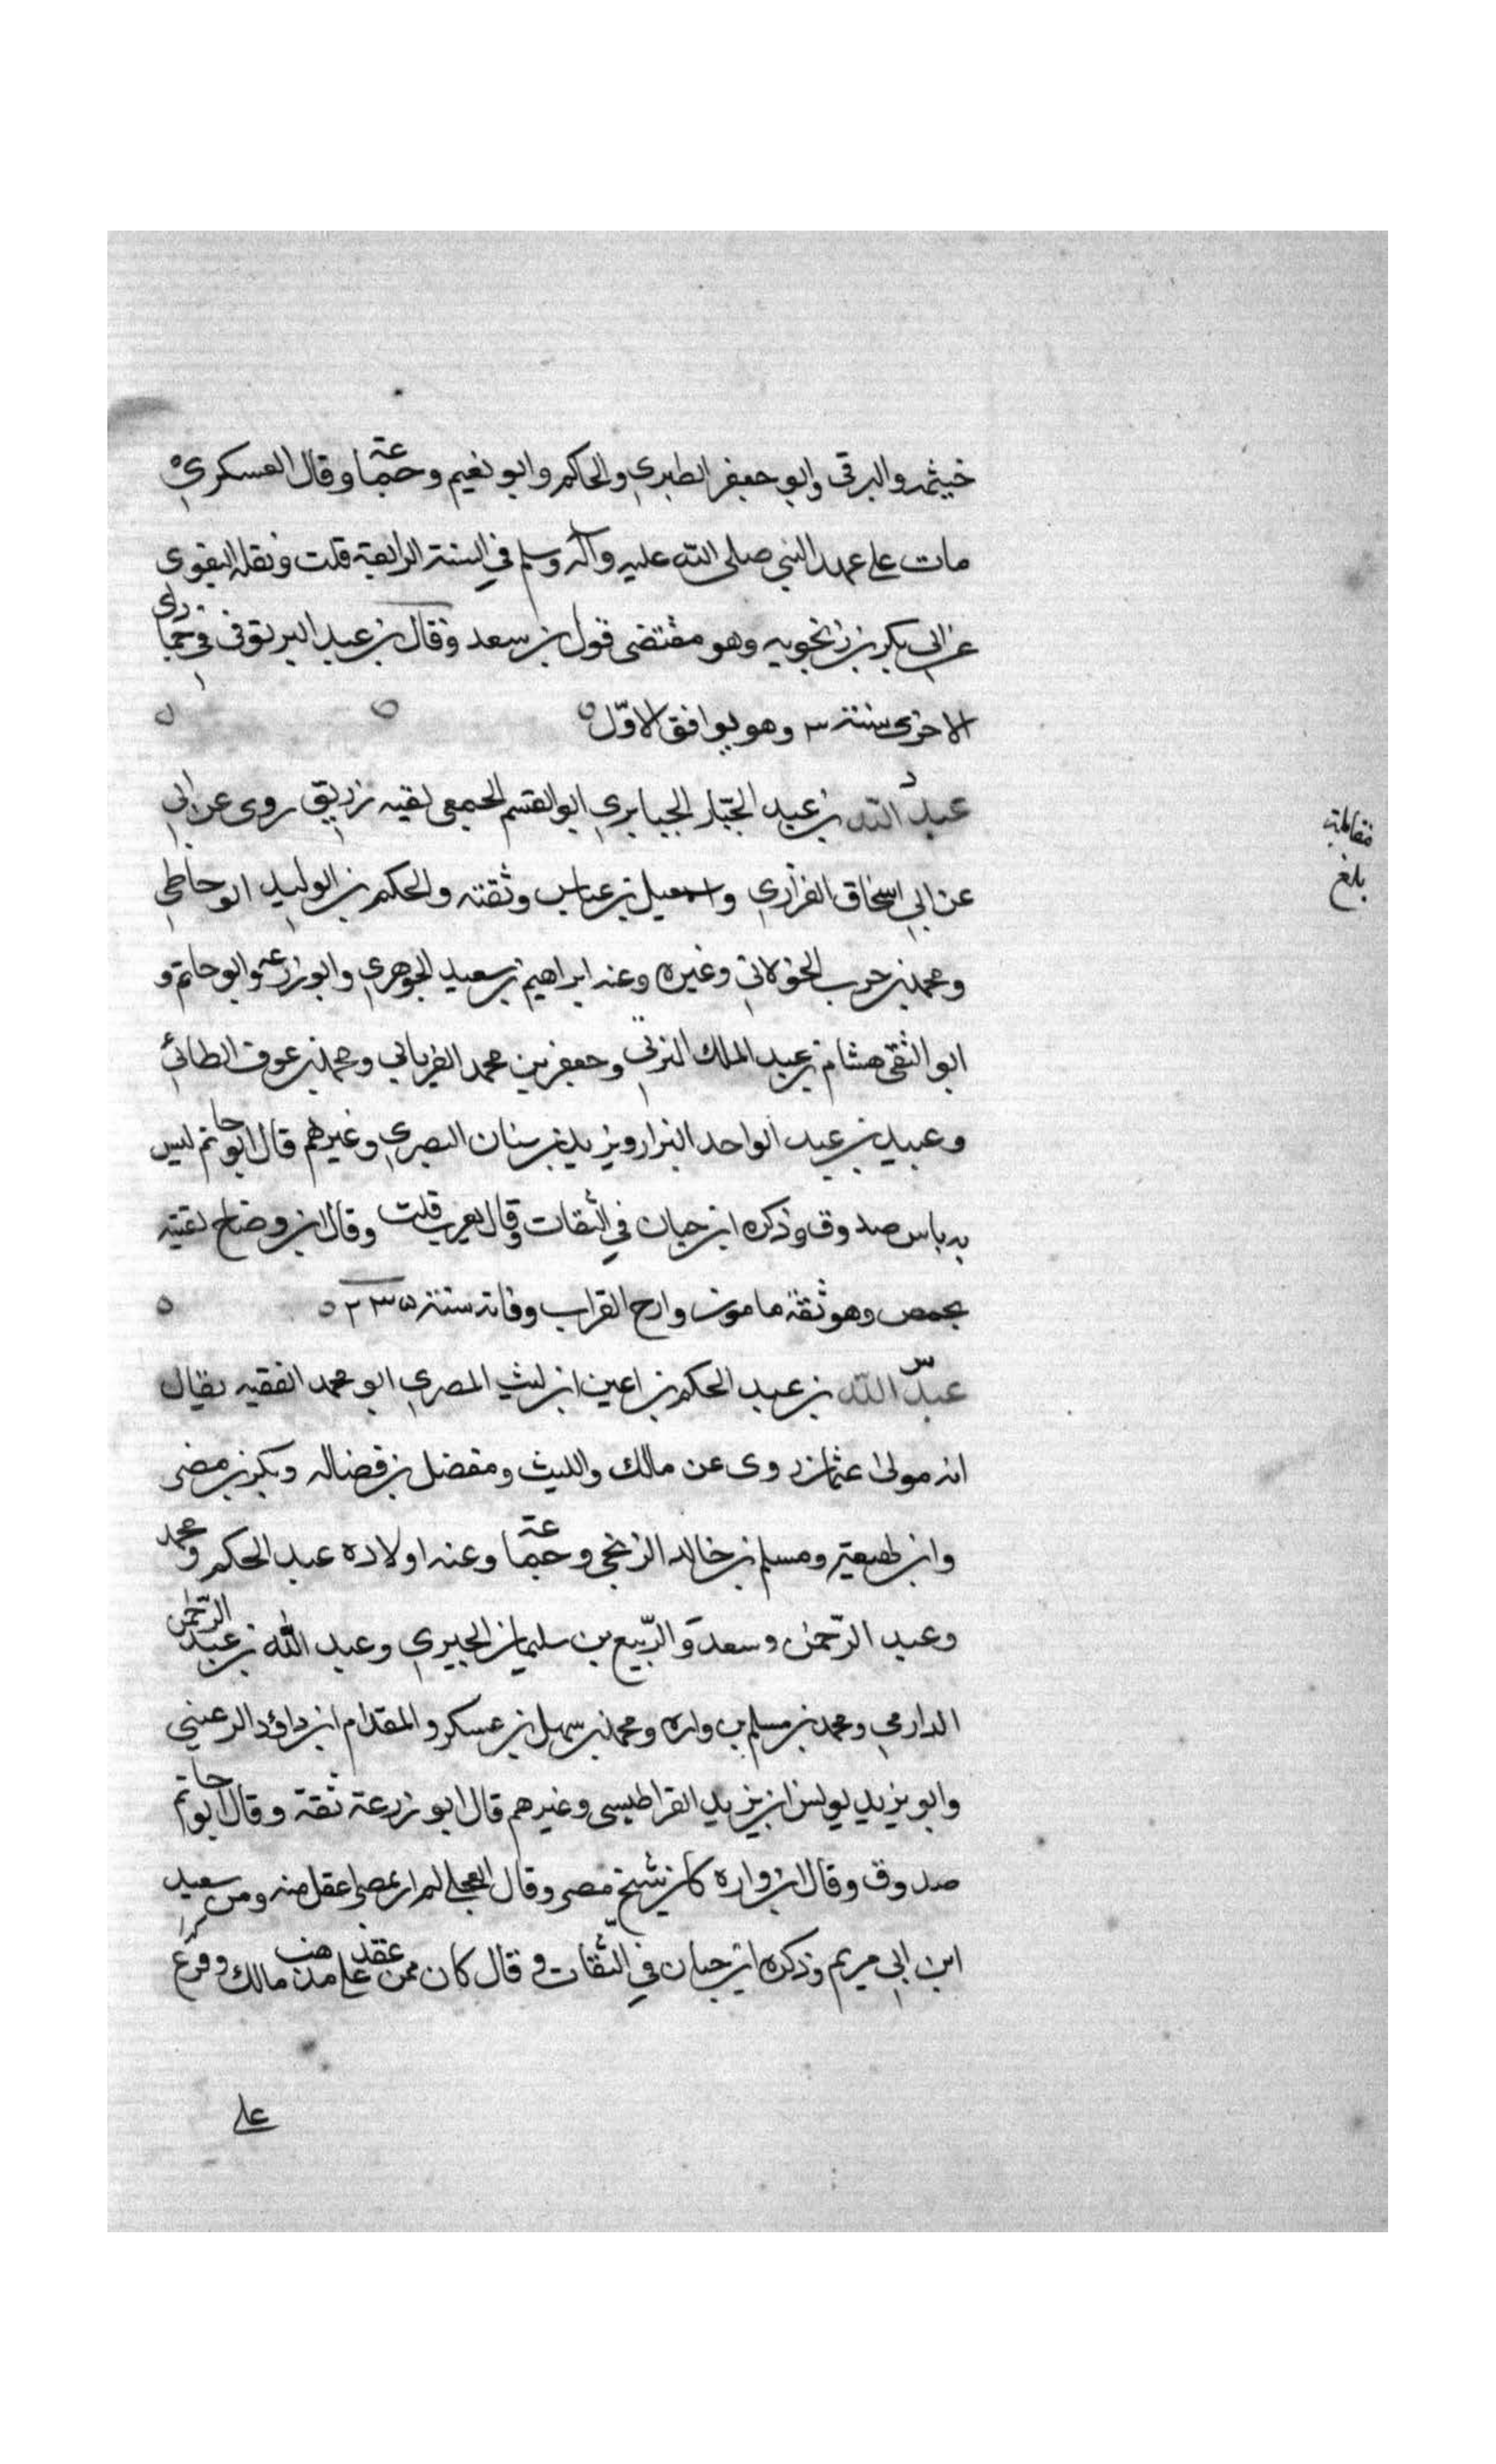 خيثمه والبرقى وابو جعفر الطبري والحاكم وابو نعيم وجماعة وقال العسكري
مات على عهد النبي صلى الله عليه وآله وسلم في السنة الرابعة قلت ونقله البغوى
عن ابي بكر بن زنجويه وهو مقتضى قول بن سعد وقال بن عبد البر توفى في جمادى
الاخرى سنة ٣ وهو يوافق الاوّل
عبد الله بن عبد الجبّار الجبايري ابو القسم الحمصى لقبه زريق روى عن ابي
عن ابي اسحاق الفزاري واسمعيل بن عياس وثقته والحكم بن الوليد الوحاظي
ومحمد بن حرب الخولاني وغيره وعنه ابراهيم بن سعيد الجوهري وابو زرعة وابو حاتم و
ابو التقى هشام بن عبد الملك اليزني وجعفر بن محمد الفريابي ومحمد بن عوف الطائي
وعبيد بن عبد الواحد البزار ويزيد بن سنان البصري وغيرهم قال ابو حاتم ليس
به باس صدوق وذكره ابن حبان في الثقات وقال يغرب قلت وقال ابن وضاح لقيته
بحمص وهو ثقة مامون وارخ القراب وفاته سنة ٢٣٥
عبد الله بن عبد الحكم بن اعين ابن ليث المصري ابو محمد الفقيه يقال
انه مولى عثمان روى عن مالك والليث ومفضل بن فضاله وبكر بن مضر
وابن لهيعة ومسلم بن خالد الزنجي وجماعة وعنه اولاده عبد الحكم ومحمد
وعبد الرّحمن وسعد والرّبيع بن سليمان الجيزي وعبد الله بن عبد الرّحمن
الدارمي ومحمد بن مسلم بن واره ومحمد بن سهل بن عسكر والمقدام ابن داؤد الرعيني
وابو يزيد يونس ابن يزيد القراطيسى وغيرهم قال ابو زرعة ثقة وقال ابو حاتم
صدوق وقال ابن واره كان شيخ مصر وقال العجلي لم ار بمصر اعقل منه ومن سعيد
ابن ابي مريم وذكره ابن حبان في الثقات وقال كان ممن عقد على مذهب مالك وفرع
على
مقابلة
بلغ